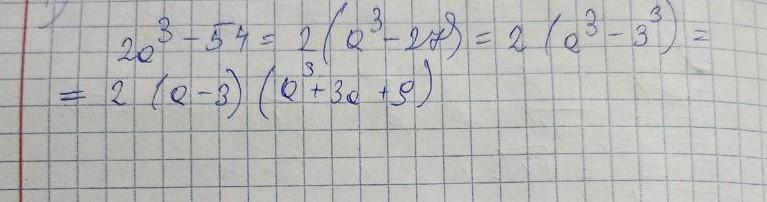 2a³ - 54 = 2(a³ - 27) = 2(a³ - 3³) =
= 2(a - 3)(a³ + 3a + 9)